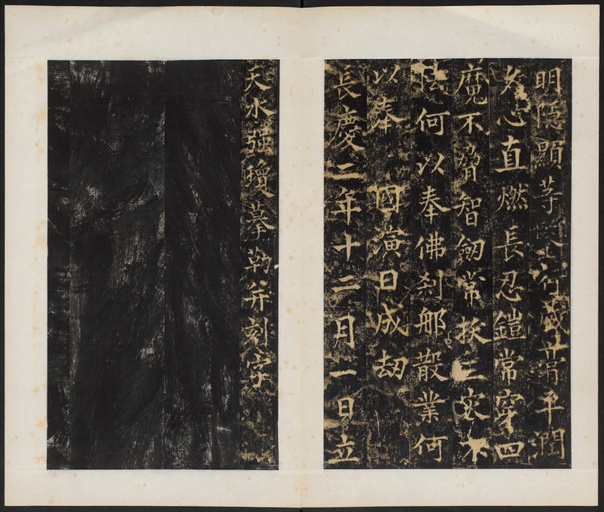 明隱顯等行戒常平潤
心直燃長忍鎧常穿四
魔不脅智劒常三灾不
何以奉佛刹那散業何
以奉 國演日成劫
長慶二年十二月一日立
天水強瓊摹勒并刻字